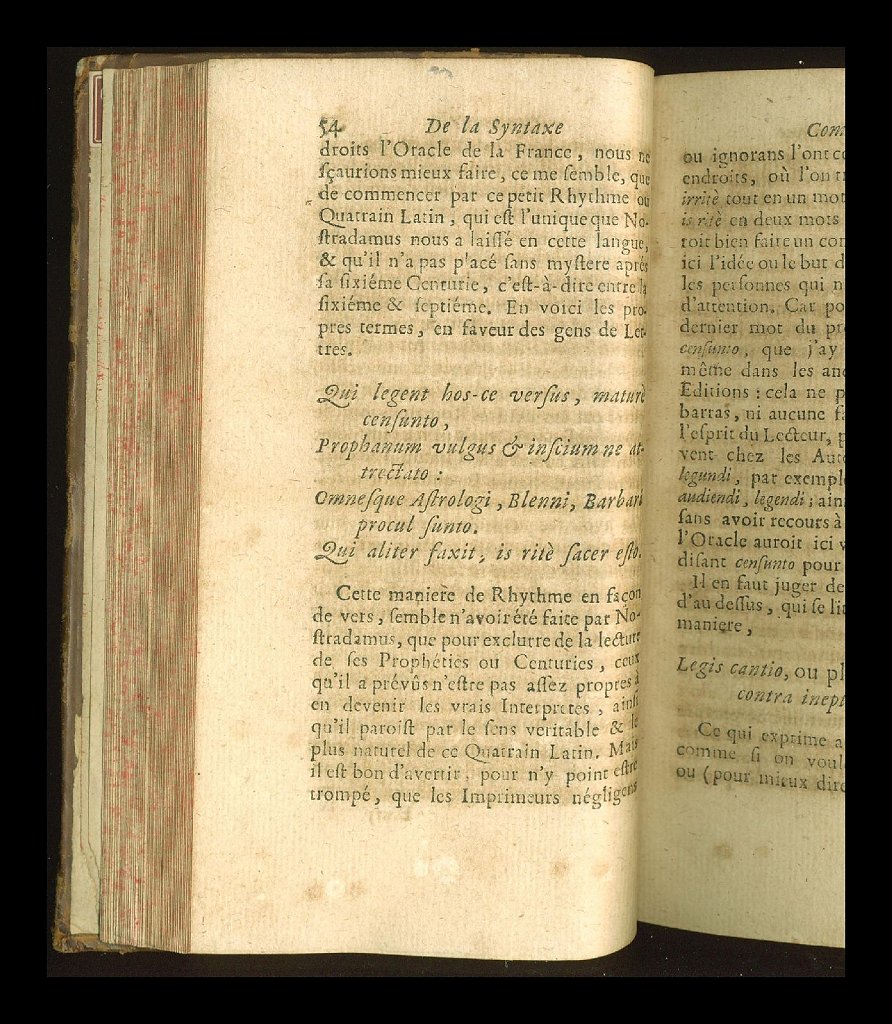 54 De la Syntaxe
droits l'Oracle de la France, nous ne
sçaurions mieux faire, ce me semble, que
de commencer par ce petit Rhythme ou
Quatrain Latin, qui est l'unique que No-
stradamus nous a laissé en cette langue,
& qu'il n'a pas placé sans mystere aprés
sa sixiéme Centurie, c'est-à-dire entre la
sixiéme & septiéme. En voici les pro-
pres termes, en faveur des gens de Let-
tres.
Qui legent hos-ce versus, maturè
censunto,
Prophanum vulgus & inscium ne at-
trectato :
Omnesque Astrologi, Blenni, Barbari
procul sunto.
Qui aliter faxit, is ritè sacer esto.
Cette maniere de Rhythme en façon
de vers, semble n'avoir été faite par No-
stradamus, que pour exclurre de la lecture
de ses Prophéties ou Centuries, ceux
qu'il a prévûs n'estre pas assez propres à
en devenir les vrais Interpretes, ainsi
qu'il paroist par le sens veritable & le
plus naturel de ce Quatrain Latin. Mais
il est bon d'avertir, pour n'y point estre
trompé, que les Imprimeurs négligens
ou ignorans l'ont
endroits, où l'on
irritè tout en un mot
is ritè en deux mots
roit bien faire un
ici l'idée ou le but
les personnes qui
d'attention. Car
dernier mot du
censunto, que j'ay
même dans les
Editions : cela ne
barras, ni aucune
l'esprit du Lecteur,
vent chez les
legundi, par
audiendi, legendi ;
sans avoir recours à
l'Oracle auroit ici
disant censunto pour
Il en faut juger de
d'au dessus, qui se
maniere,
Legis cantio, ou
contra
Ce qui exprime
comme si on
ou (pour mieux